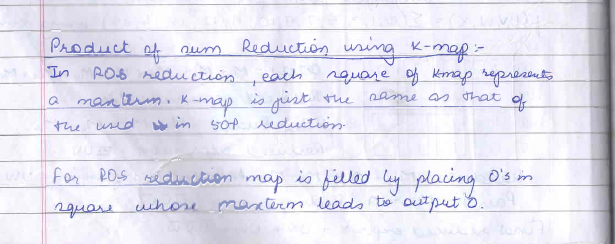 Product of sum Reduction using K-map :-
In POS reduction, each square of Kmap represents
a maxterm. K-map is just the same as that of
the used in SOP reduction.
For POS reduction map is filled by placing 0's in
square whose maxterm leads to output 0.